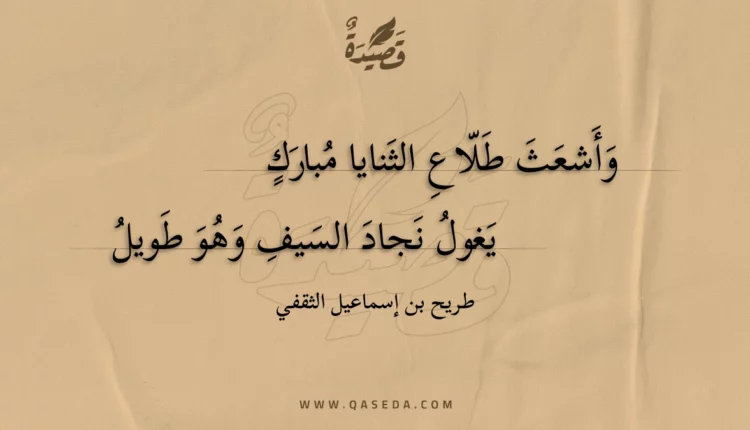 قَصِيْدَةٌ
وَأَشعَثَ طَلّاعِ الثَنايا مُبارَكٍ
يَغولُ نَجادَ السَيفِ وَهُوَ طَويلُ
طريح بن إسماعيل الثقفي
WWW.QASEDA.COM